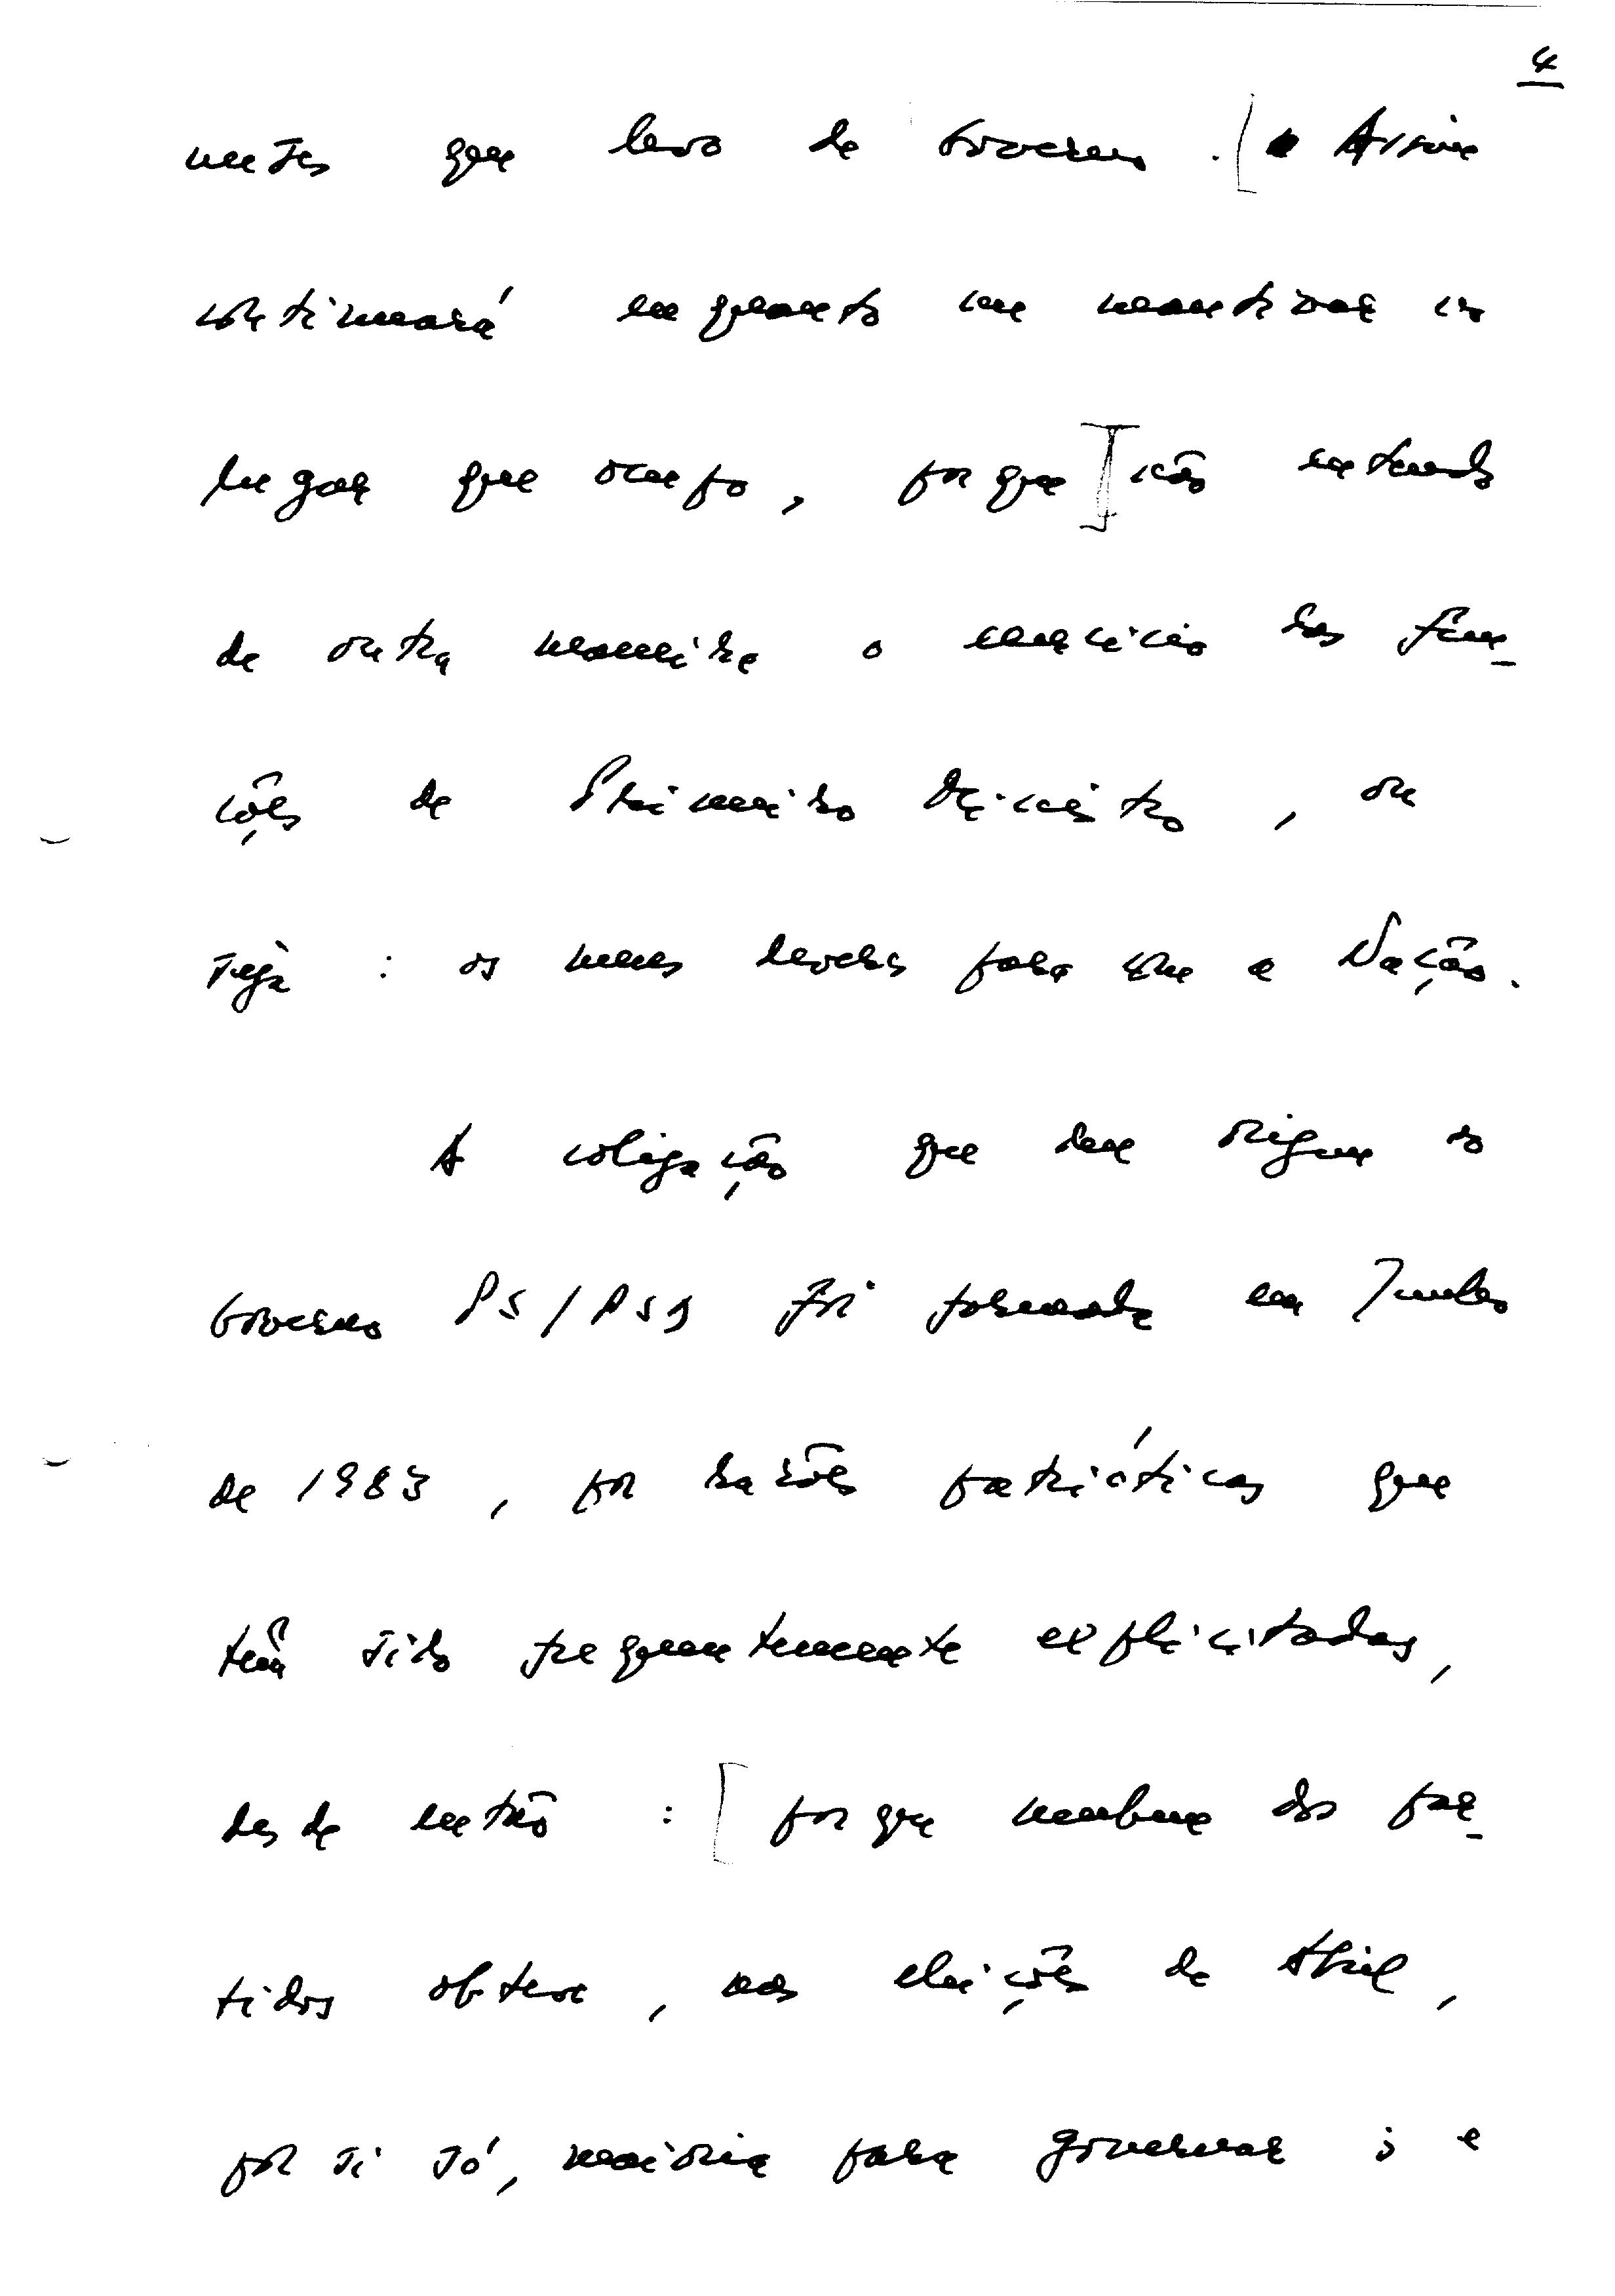 4
meses que levo de Governo. [ Assim
continuará enquanto me mantiver no
lugar que ocupo, porque ] não entendo
de outra maneira o exercício das fun-
ções de Primeiro Ministro, ou
seja: os meus deveres para com a Nação.
A coligação que deu origem ao
Governo PS/PSD foi formada em Junho
de 1983, por razões patrióticas que
têm sido frequentemente explicitadas,
desde então: [ porque nenhum dos par-
tidos obteve, nas eleições de Abril,
por si só, maioria para governar; e